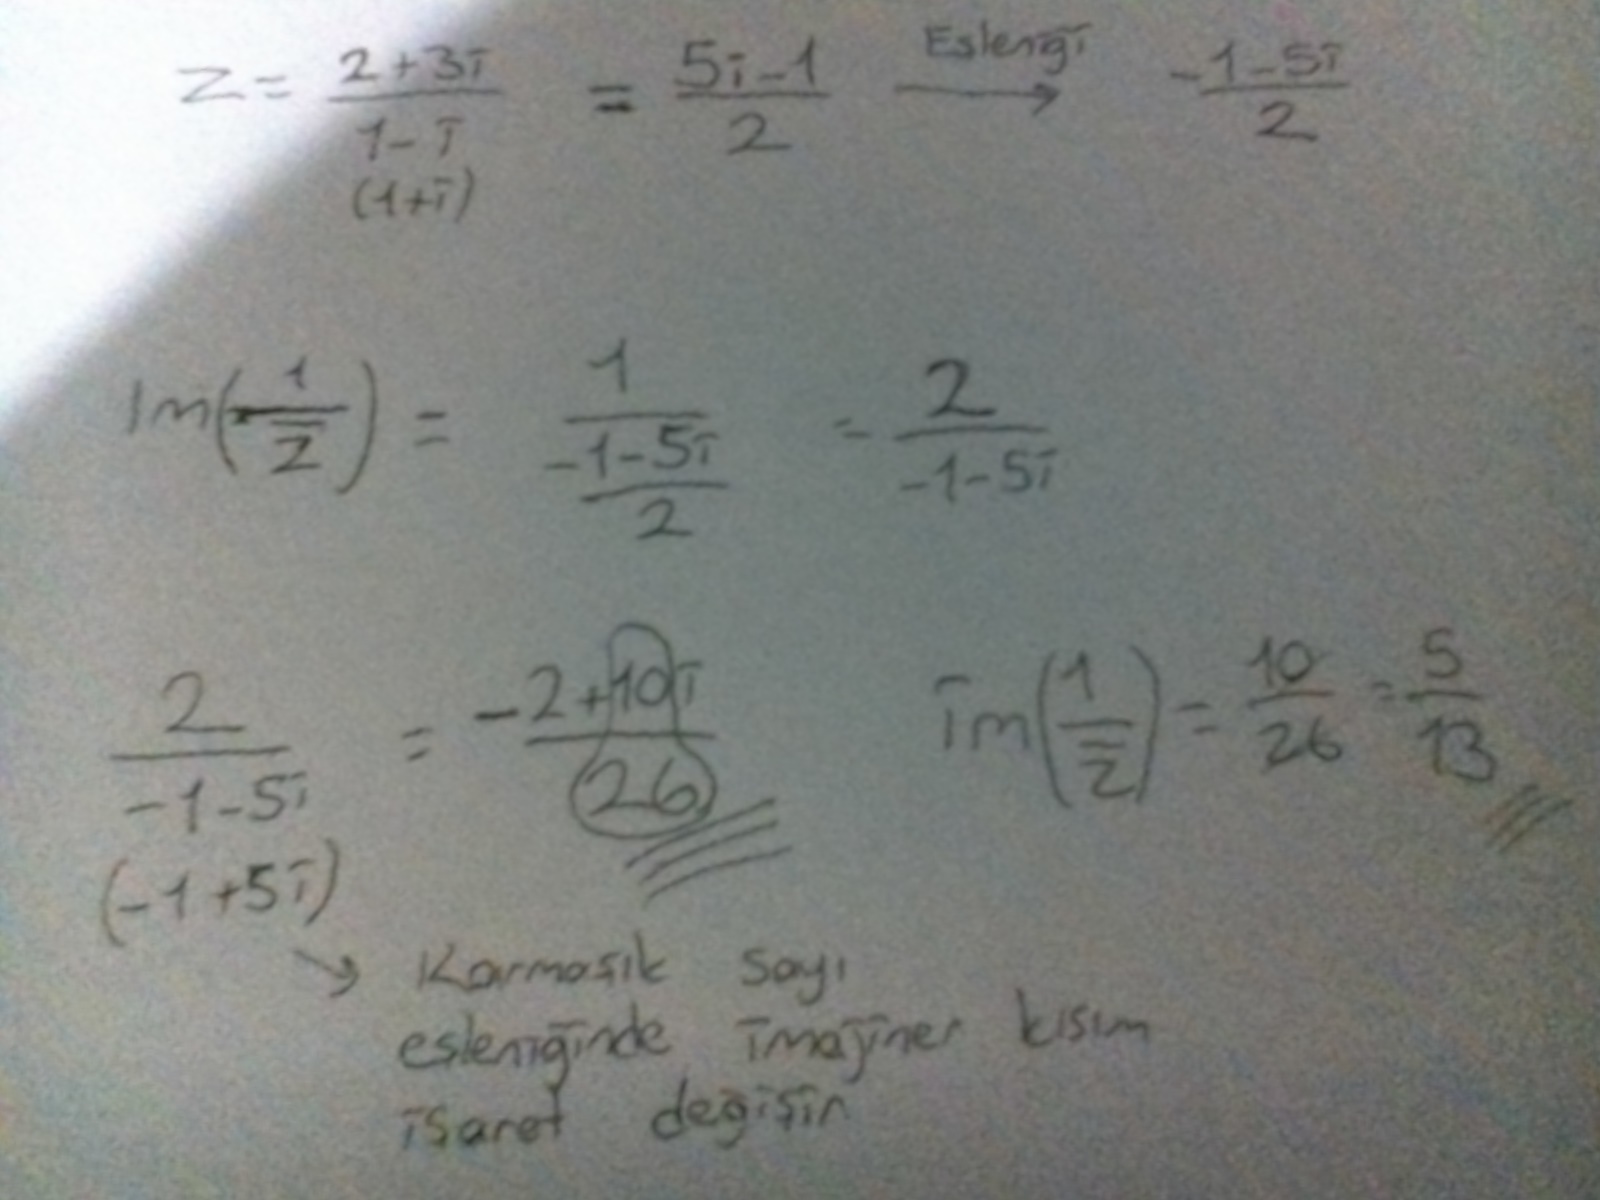 z = (2+3i)/(1-i) = (5i-1)/2 Eşleniği → (-1-5i)/2
(1+i)
Im(1/z̅) = 1/((-1-5i)/2) = 2/(-1-5i)
2/(-1-5i) = (-2+10i)/26 im(1/z̅) = 10/26 = 5/13
(-1+5i)
→ Karmaşık sayı
eşleniğinde imajiner kısım
işaret değişir